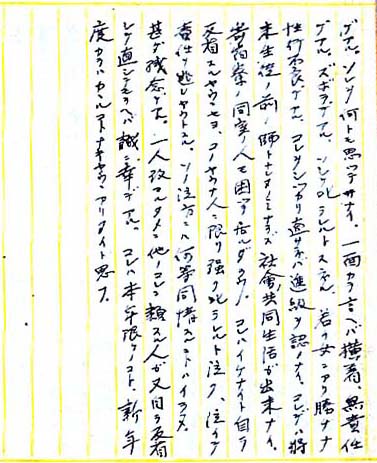 デアル。ソレヲ何トモ思ッテ居ナイ。一面カラ言ヘバ横着、無責任
デアル。ズボラデアル。ソシテ叱ラレルトスネル。若イ女ニアリ勝ナ
性行不良デアル。コレヲシッカリ直サネバ進級ヲ認メナイ。コレデハ将
来生徒ノ前ニ師トナレナイノミナラズ社会ノ共同生活ガ出来ナイ。
寄宿寮ノ同室ノ人モ困ッテ居ルダラウ。コレハイケナイト自ラ
反省スルヤウニセヨ。コノヤウナ人ニ限リ強ク叱ラレルト泣ク、泣イテ
責任ヲ逃レヤウトスル。ソノ泣方ニハ何等同情スルコトハイラヌ。
甚ダ残念デアル。一人改マルタメニ他ノコレニ類スル人ガ又自ラ反省
シテ直シテ呉レヽバ誠ニ幸デアル。コレハ本年限リノコト、新年
度カラハカヽルコトナキヤウニアリタイト思フ。